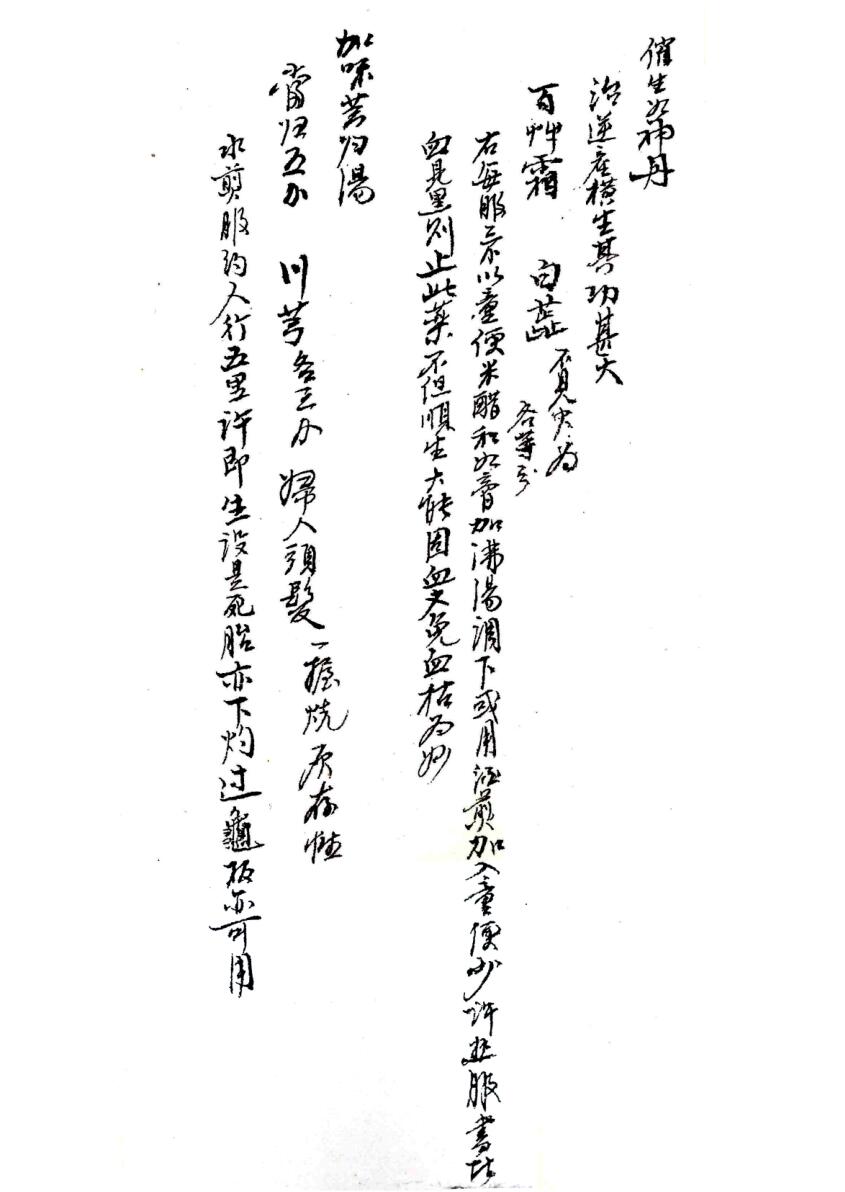 催生如神丹
治逆產橫生其功甚大
百艸霜 白芷 不見火為 各等分
右每服二錢以童便米醋和如膏加沸湯調下或用酒煎加入童便少許熱服書
血見黑則止此藥不但順生大能固血又免血枯為妙
加味芎归湯
當归五分 川芎各三分 婦人頭髮一握燒灰存性
水煎服約人行五里許即生設是死胎亦下灼过龜板亦可用